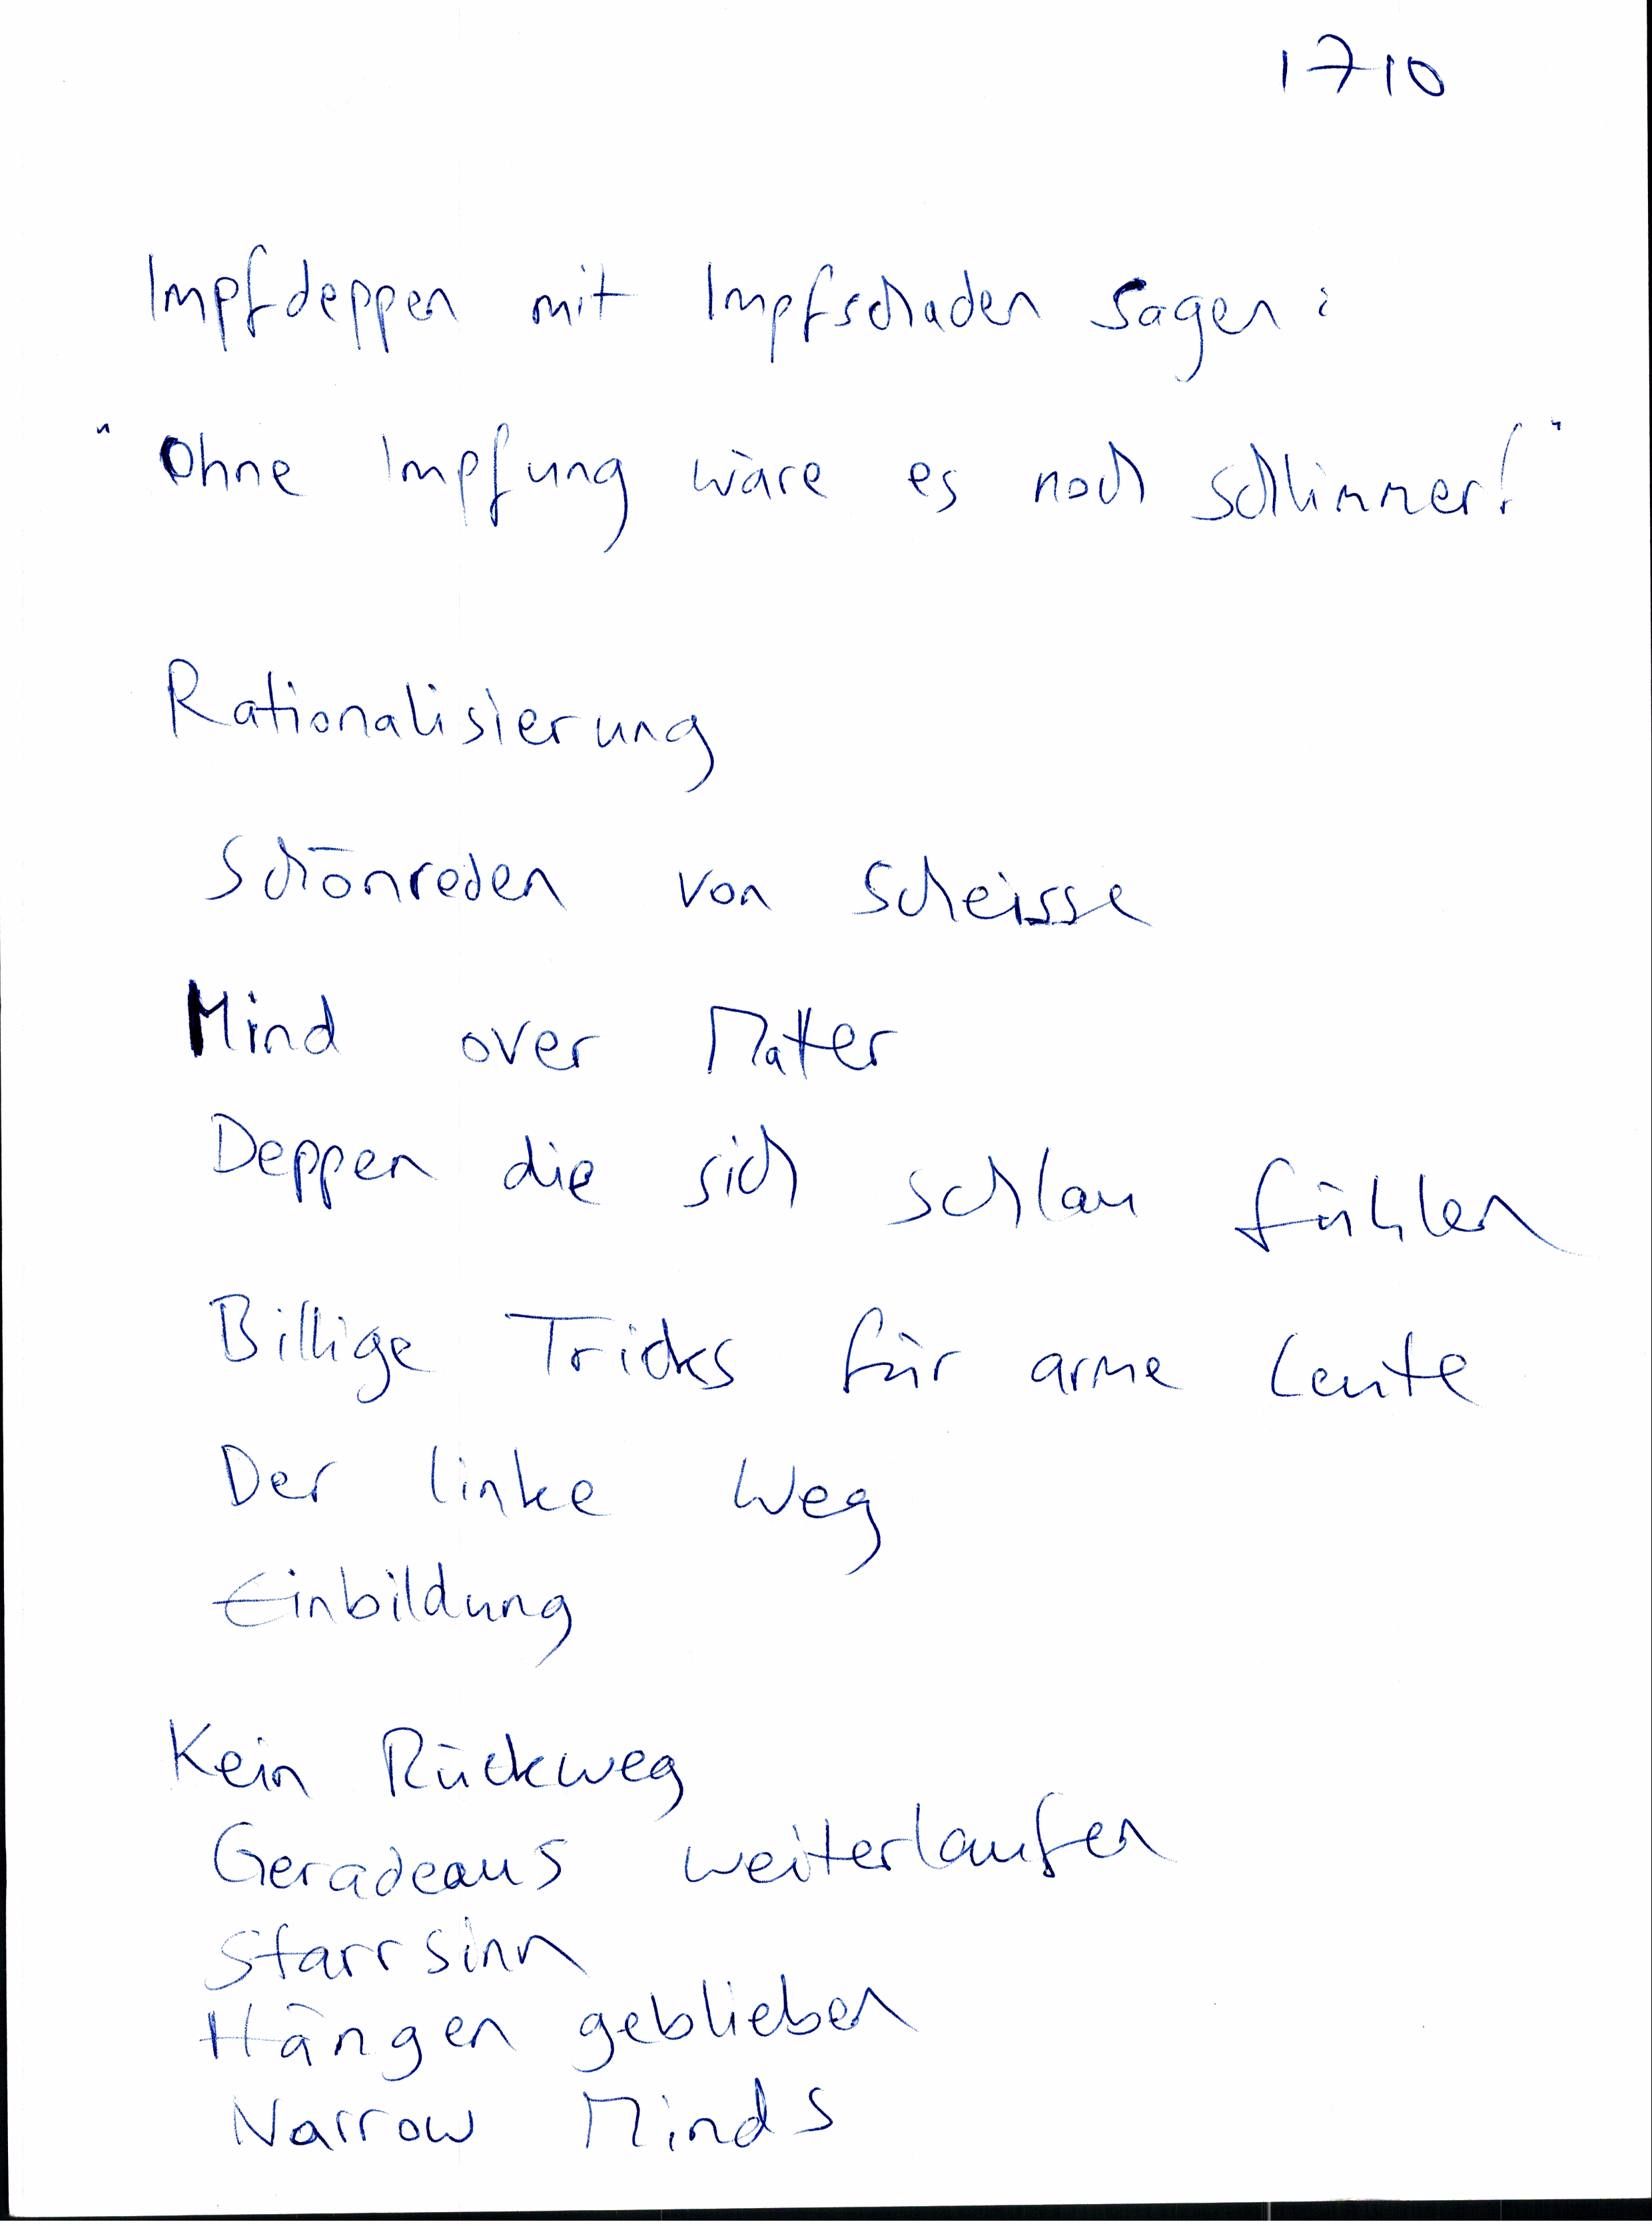 1710
Impfdeppen mit Impfschaden sagen:
"Ohne Impfung wäre es noch schlimmer!"
Rationalisierung
Schönreden von Scheisse
Mind over Matter
Deppen die sich schlau fühlen
Billige Tricks für arme Leute
Der linke Weg
Einbildung
Kein Rückweg
Geradeaus weiterlaufen
Starrsinn
Hängen geblieben
Narrow Minds